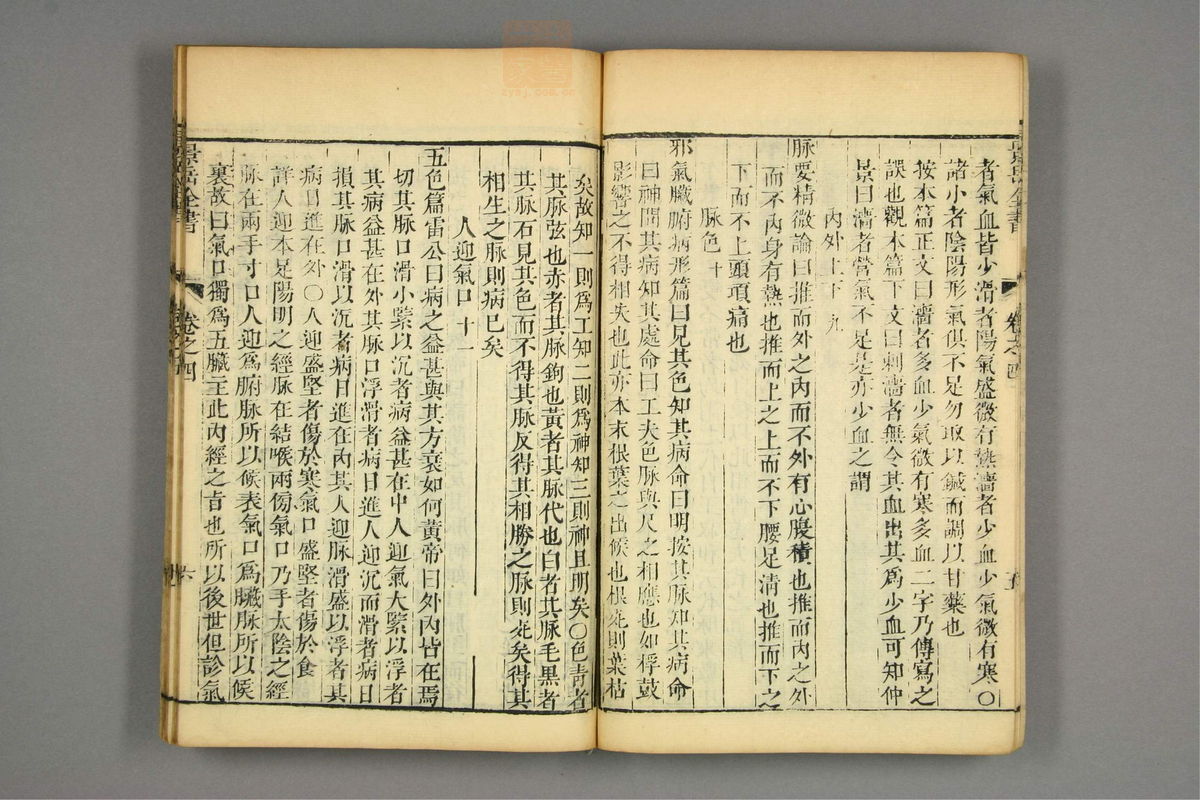 者氣血皆少滑者陽氣盛微有熱濇者少血少氣微有寒〇
諸小者陰陽形氣俱不足勿取以鍼而調以甘藥也
按本篇正文曰濇者多血少氣微有寒多血二字乃傳寫之
誤也觀本篇下文曰刺濇者無令其血出其為少血可知仲
景曰濇者營氣不足是亦少血之謂
內外上下九
脉要精微論曰推而外之內而不外有心腹積也推而內之外
而不內身有熱也推而上之上而不下腰足淸也推而下之
下而不上頭項痛也
脉色十
邪氣臟腑病形篇曰見其色知其病命曰明按其脉知其病命
曰神問其病知其處命曰工夫色脉與尺之相應也如桴鼓
影響之不得相失也此亦本末根葉之出候也根死則葉枯
矣故知一則爲工知二則爲神知三則神且明矣〇色青者
其脉弦也赤者其脉鉤也黃者其脉代也白者其脉毛黑者
其脉石見其色而不得其脉反得其相勝之脉則死矣得其
相生之脉則病已矣
人迎氣口十一
五色篇雷公曰病之益甚與其方衰如何黃帝曰外內皆在焉
切其脉口滑小緊以沉者病益甚在中人迎氣大緊以浮者
其病益甚在外其脉口浮滑者病日進人迎沉而滑者病日
損其脉口滑以沉者病日進在內其人迎脉滑盛以浮者其
病日進在外〇人迎盛堅者傷於寒氣口盛堅者傷於食
詳人迎本足陽明之經脉在結喉兩傍氣口乃手太陰之經
脉在兩手寸口人迎爲腑脉所以候表氣口爲臟脉所以候
裏故曰氣口獨爲五臟主此內經之旨也所以後世但診氣
景岳全書
卷之四
六